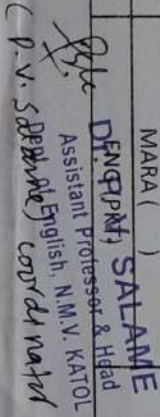 MARA ( )
Dr. P. V. SALAME
Assistant Professor & Head
Dept of English, N.M.V. KATOL
(P.V. Salame) coordinator